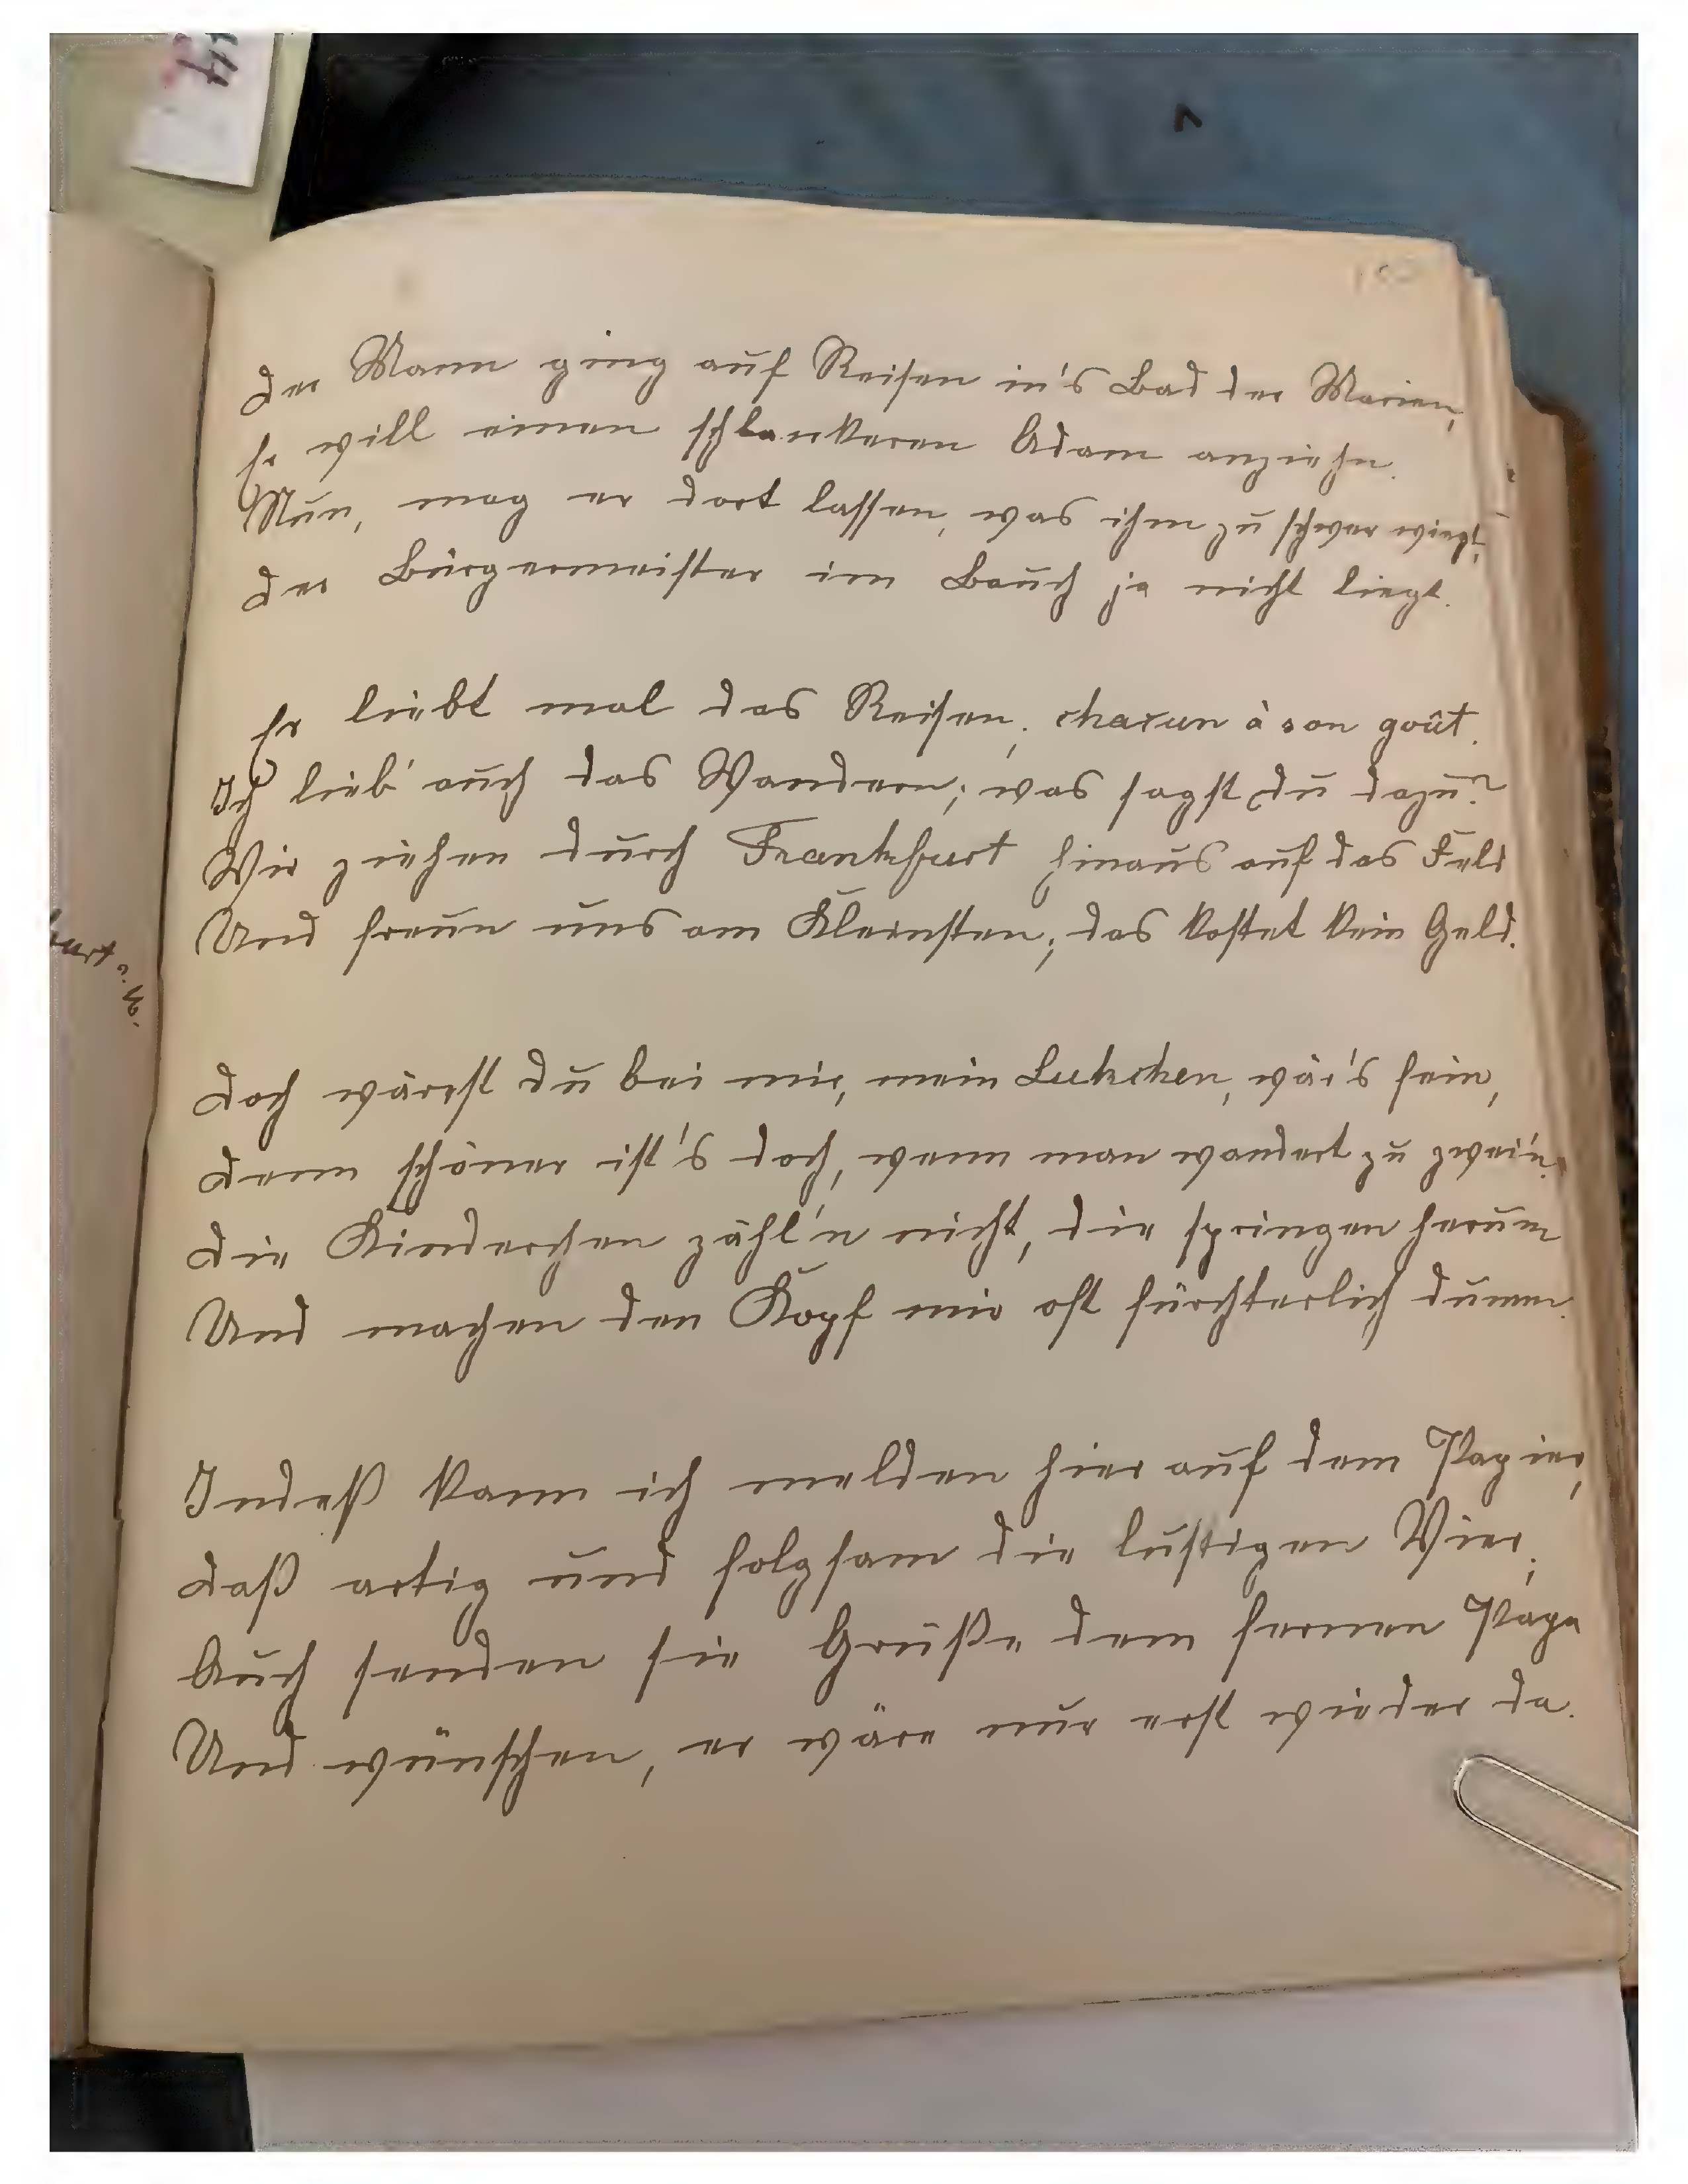 Der Mann ging auf Reisen in's Bad der Marien,
Er will einen schlankeren Adam anziehn.
Nun, mag er dort lassen, was ihm zu schwer wiegt;
Der Bürgermeister im Bauch ja nicht liegt.
Er liebt mal das Reisen; chacun à son goût.
Ich lieb' auch das Wandern; was sagst du dazu?
Wir ziehen durch Frankfurt hinaus auf das Feld
Und freun uns am Kleinsten; das kostet kein Geld.
Doch wärest du bei mir, mein Lutzchen, wär's fein,
Denn schöner ist's doch, wenn man wandert zu zwei'n.
Die Kinderchen zähl'n nicht, die springen herum
Und machen den Kopf mir oft fürchterlich dumm.
Indeß kann ich melden hier auf dem Papier,
Daß artig und folgsam die lustigen Vier;
Auch senden sie Grüße dem fernen Papa
Und wünschen, er wäre nur erst wieder da.